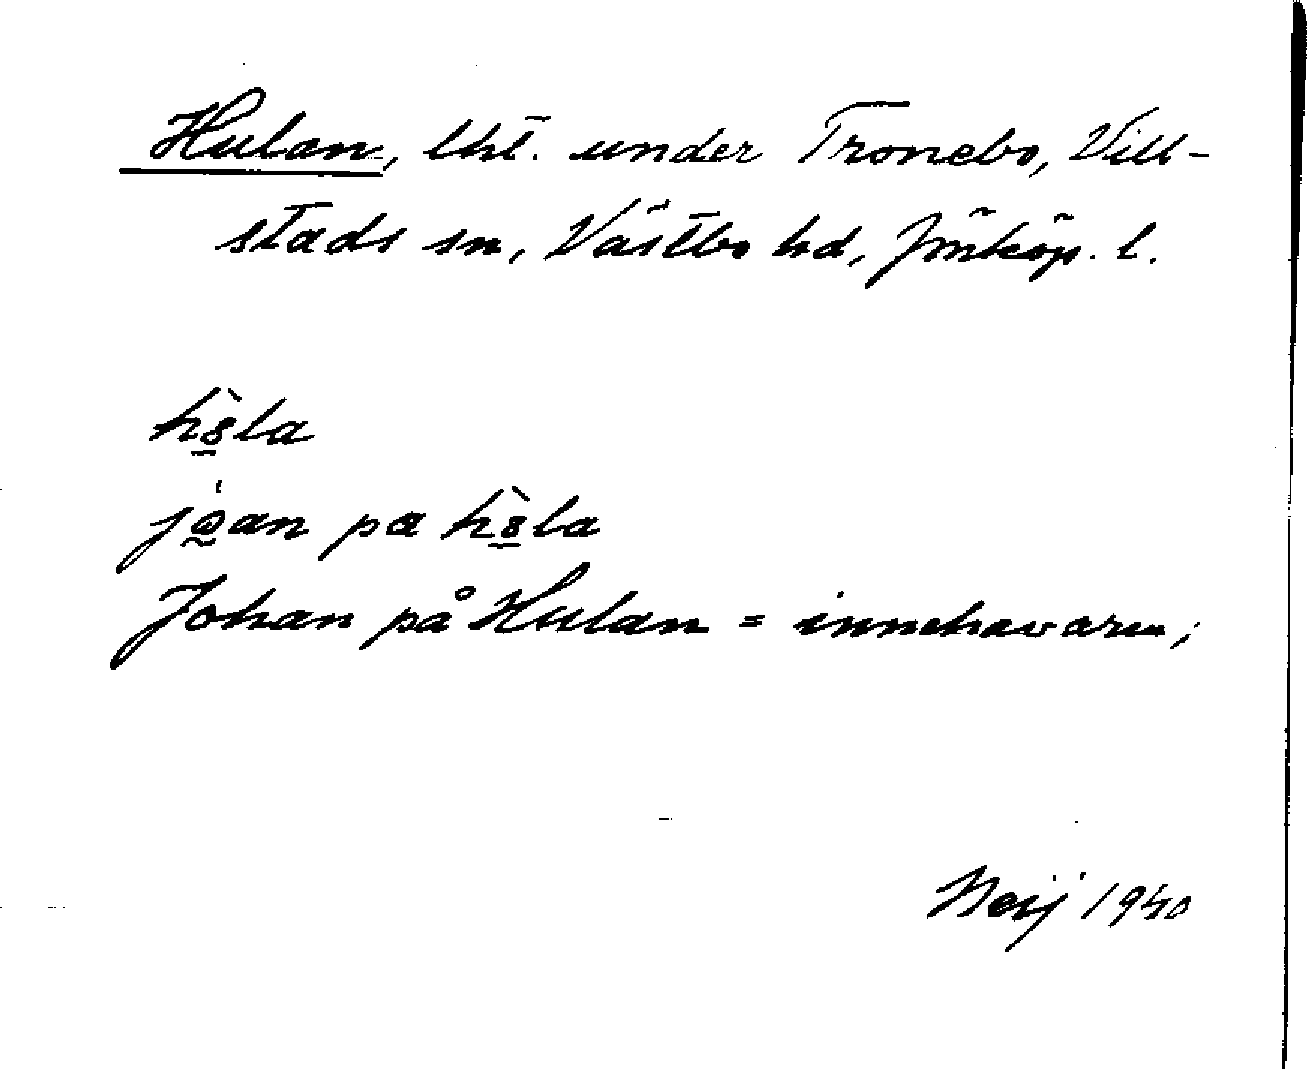 Hulan, lht. under Tronebo, Vill-
stads sn, Västbo hd, Jönköp. l.
Johan på Hulan = innehavaren;
1940